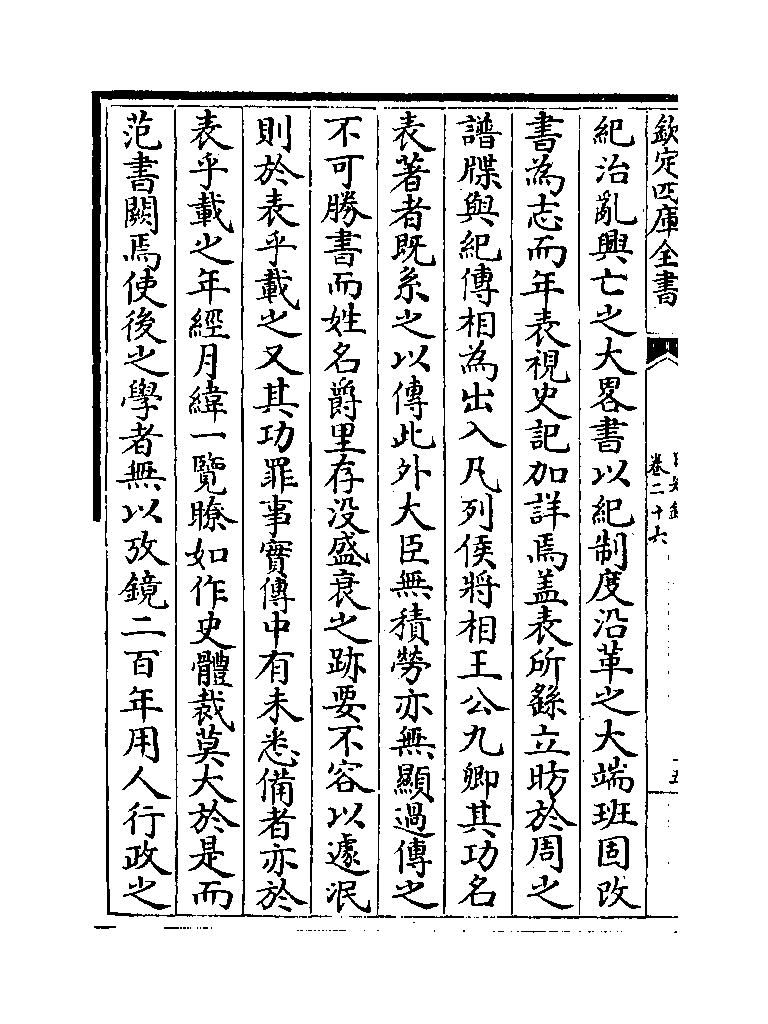 欽定四庫全書
卷二十六
紀治亂興亡之大畧書以紀制度沿革之大端班固改
書為志而年表視史記加詳焉盖表所繇立昉於周之
譜牒與紀傳相為出入凡列侯將相王公九卿其功名
表著者既系之以傳此外大臣無積勞亦無顯過傳之
不可勝書而姓名爵里存没盛衰之跡要不容以遽泯
則於表乎載之又其功罪事實傳中有未悉備者亦於
表乎載之年經月緯一覽瞭如作史體裁莫大於是而
范書闕焉使後之學者無以攷鏡二百年用人行政之